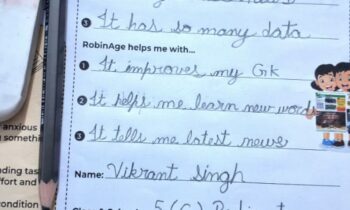 ③ It has so many data
RobinAge helps me with...
① It improves my Gk
② It helps me learn new words
③ It tells me latest news
Name: Vikrant Singh
anxious
somethi
ding tas
ffort and
condition